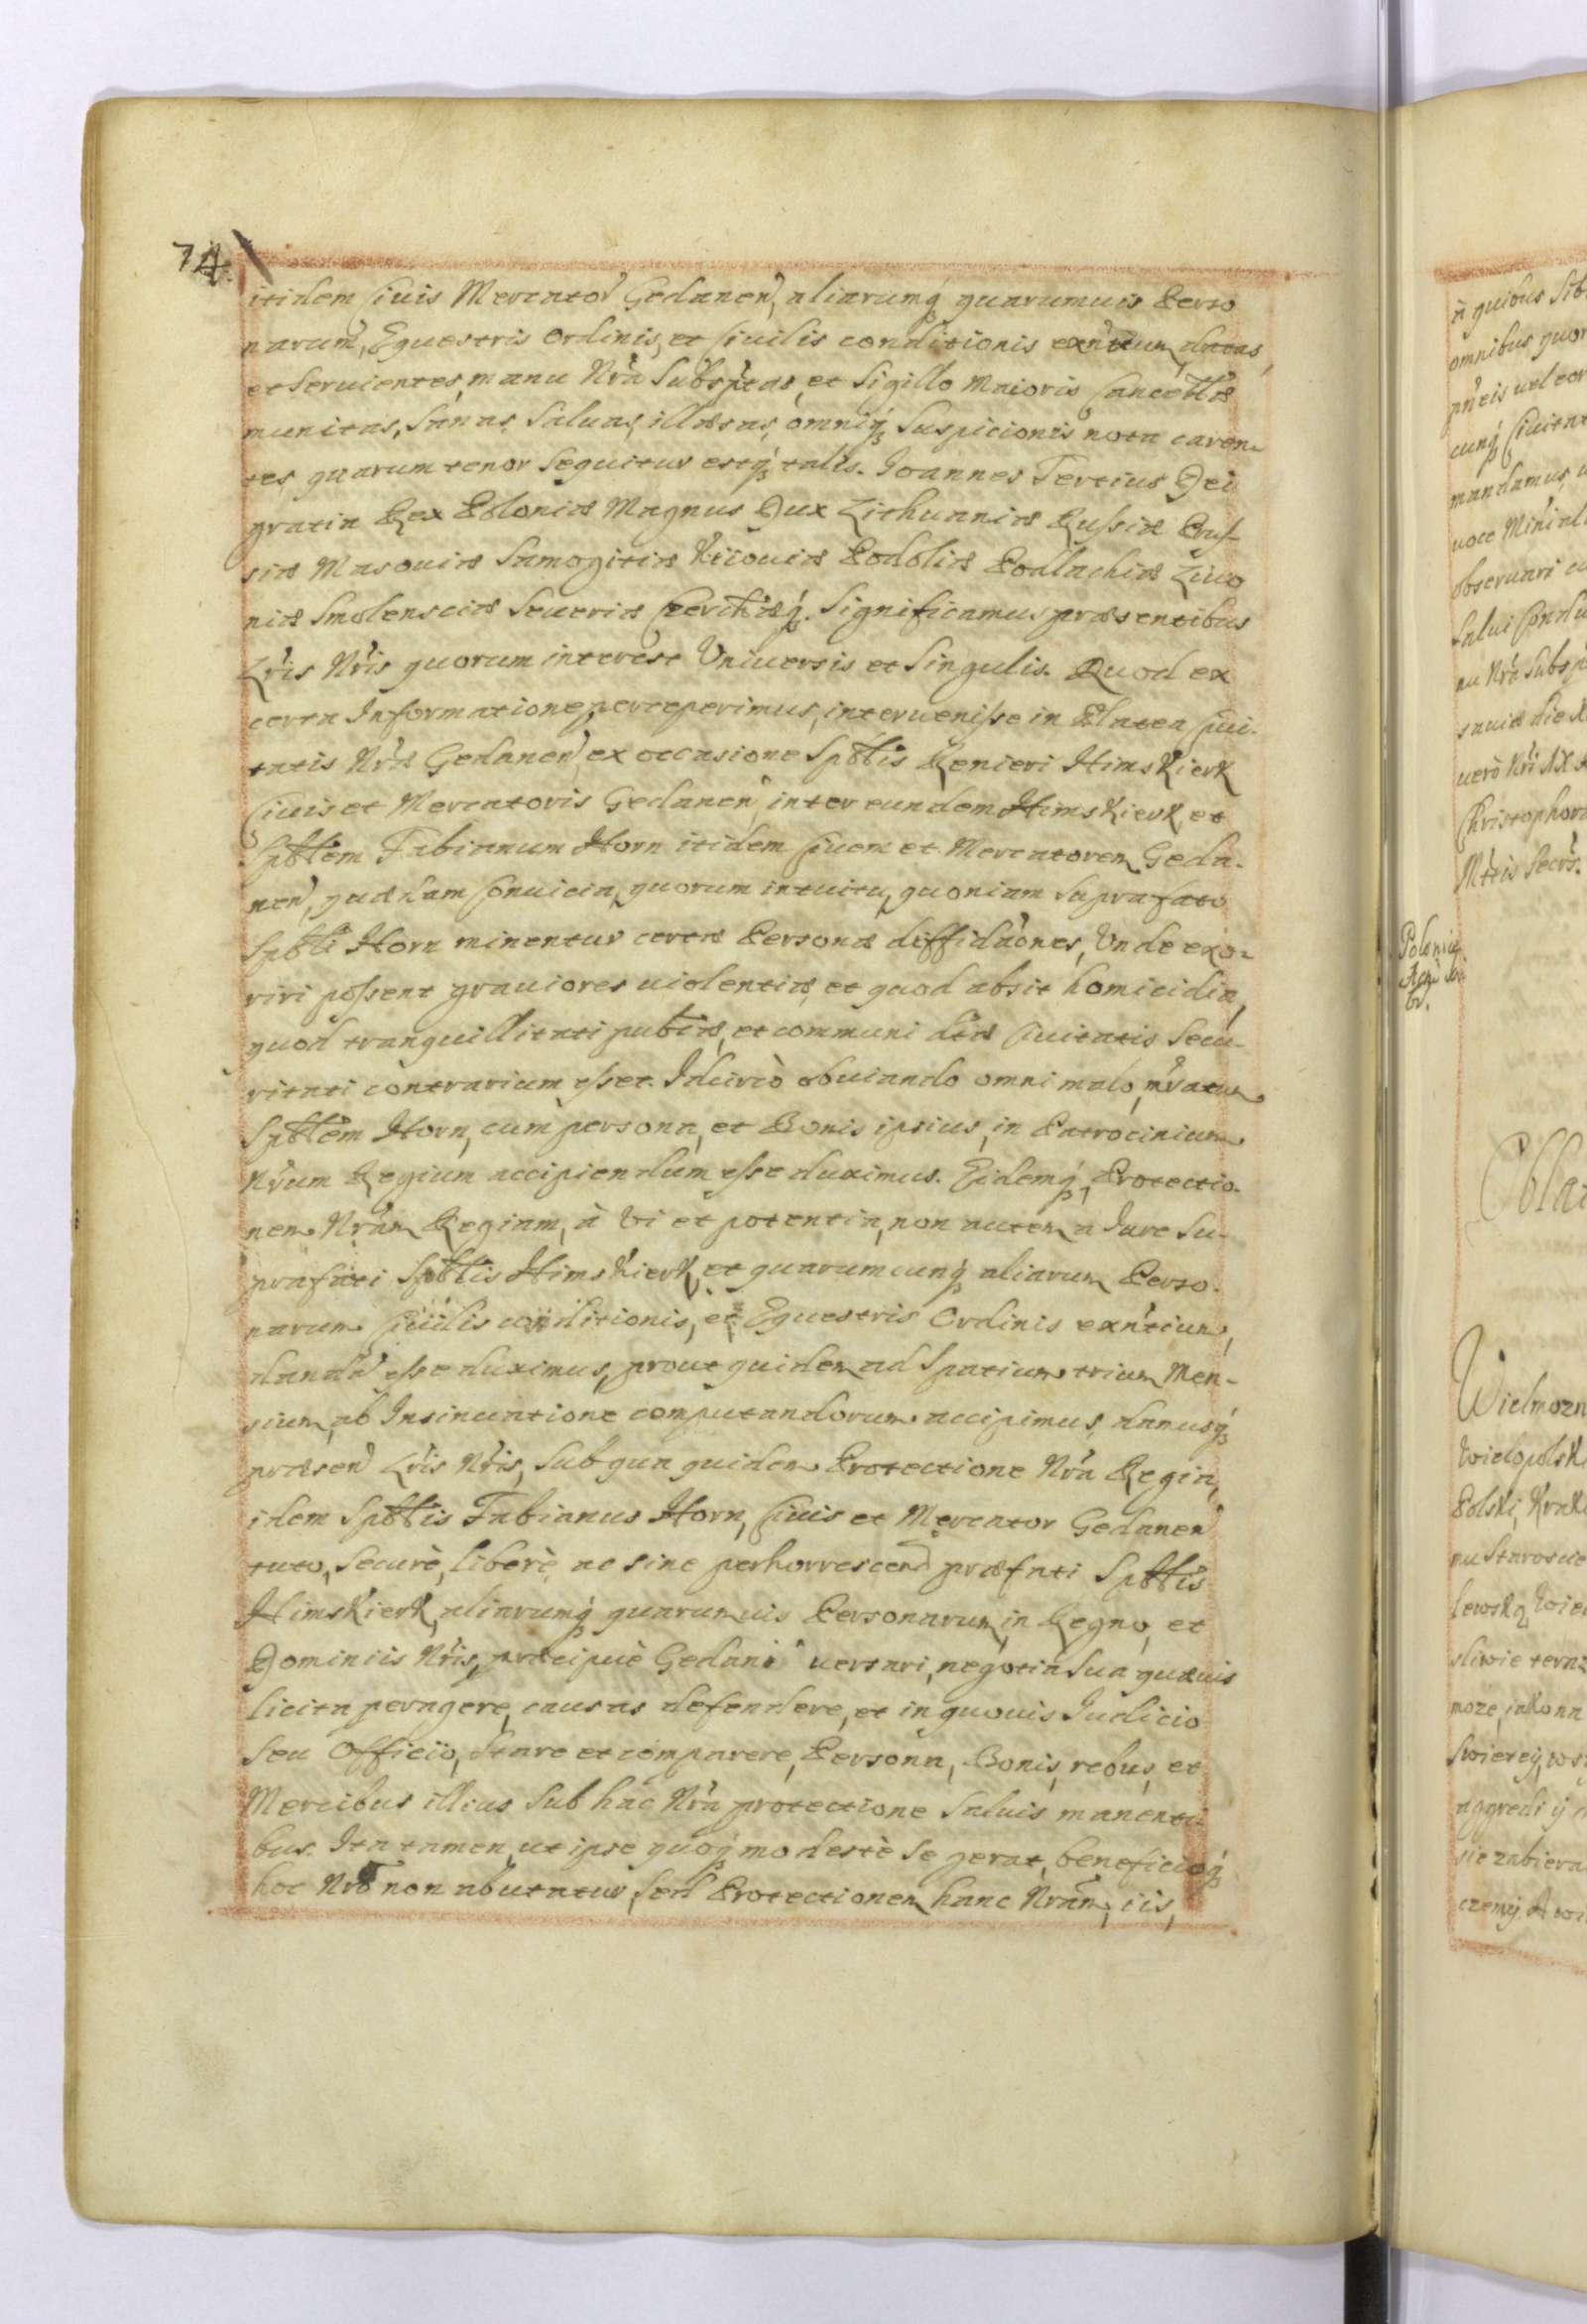 74
itidem Ciuis Mercator Gedanen, aliarumq́ꝫ quarumuis Perso
narum, Equestris Ordinis, et Ciuilis conditionis exñtium, datas,
et seruientes, manu Nrã Subsptas, et Sigillo Maioris Cancellæ
munitas, Sanas, Saluas, illæsas, omniq́ꝫ Suspicionis nota caren
tes quarum tenor Sequitur estq́ꝫ talis. Joannes Tertius Dei
gratia Rex Poloniæ Magnus Dux Lithuaniæ Russiæ Prus-
siæ Masouiæ Samogitiæ Kiiouiæ Podoliæ Podlachiæ Liuo
niæ Smolensciæ Seueriæ Czerchiæq́ꝫ. Significamus præsentibus
Lrĩs Nrĩs quorum interest Vniuersis et Singulis. Quod ex
certa Informatione perceperimus, interuenisse in Platea Ciui-
tatis Nræ Gedanen, ex occasione Spblis Renieri Himskierk
Ciuis et Mercatoris Gedanen, inter eundem Himskierk, et
Spblem Fabianum Horn itidem Ciuem et Mercatorem Geda-
nen, quædam Conuicia, quorum intuitu, quoniam suprafato
Spbli Horn minentur certæ Personæ diffidãones, Vnde exo-
riri possent grauiores uiolentiæ, et quod absit homicidia,
quod tranquillitati publæ, et communi dtæ Ciuitatis Secu-
ritati contrarium esset. Idcircò obuiando omni malo, mratum
Spblem Horn, cum persona, et Bonis ipsius, in Patrocinium
Nrum Regium accipiendum esse duximus. Eidemq́ꝫ, Protectio-
nem Nram Regiam, à Vi et potentia, non autem a Jure Su-
prafati Spblis Himskierk, et quarumcunq́ꝫ aliarum Perso-
narum Ciuilis conditionis, et Equestris Ordinis exñtium,
dandã esse duximus, prout quidem ad Spatium trium Men-
sium, ab Insinuatione computandorum accipimus, damusq́ꝫ
præsen Lrĩs Nrĩs, Sub qua quidem Protectione Nrã Regia,
idem Spblis Fabianus Horn, Ciuis et Mercator Gedanen
tuto, Securè, liberè, ac sine perhorrescen præfati Spblis
Himskierk, aliarumq́ꝫ quarumuis Personarum, in Regno, et
Dominiis Nrĩs, præcipuè Gedani uersari, negotia Sua quæuis
licita peragere, causas defendere, et in quouis Judicio
Seu Officiio, Stare et comparere, Persona, Bonis, rebus, et
Mercibus illius Sub hac Nrã protectione Saluis manenti-
bus. Ita tamen, ut ipse quoq́ꝫ modestè Se gerat, beneficioq́ꝫ
hoc Nrõ non abutatur, Sed Protectionem hanc Nram, iis,
à quibus Sib
omnibus quor
mandamus,
obseruari
Salui Condu
Christophor
Wielmozn
Wielopolsk
Polski,
nu Staroscie